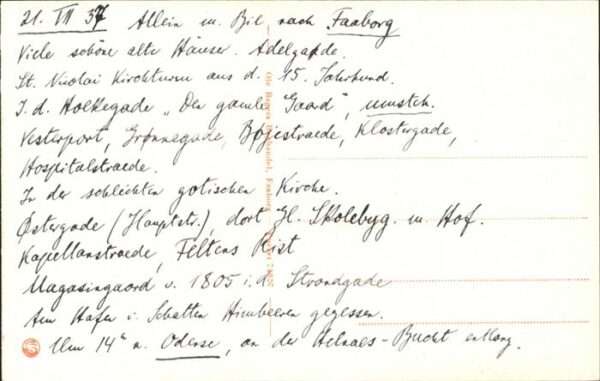 21. VII 37 Allein m. Bil nach Faaborg
Viele schöne alte Häuser. Adelgade.
St. Nicolai Kirchturm aus d. 15. Jahrhund.
I. d. Holkegade „Den gamle Gaard", umsteh.
Vesterport, Grønnegade, Bøjestraede, Klostergade,
Hospitalstraede.
In der schlichten gotischen Kirche.
Østergade (Hauptstr.), dort Gl. Skolebyg. m. Hof.
Kapellanstraede, Feltens Rist
Magasingaard v. 1805 i. d. Strandgade
Am Hafen i. Schatten Himbeeren gegessen.
Um 14 n. Odense, an der Helnaes-Bucht entlang.
Faaborg